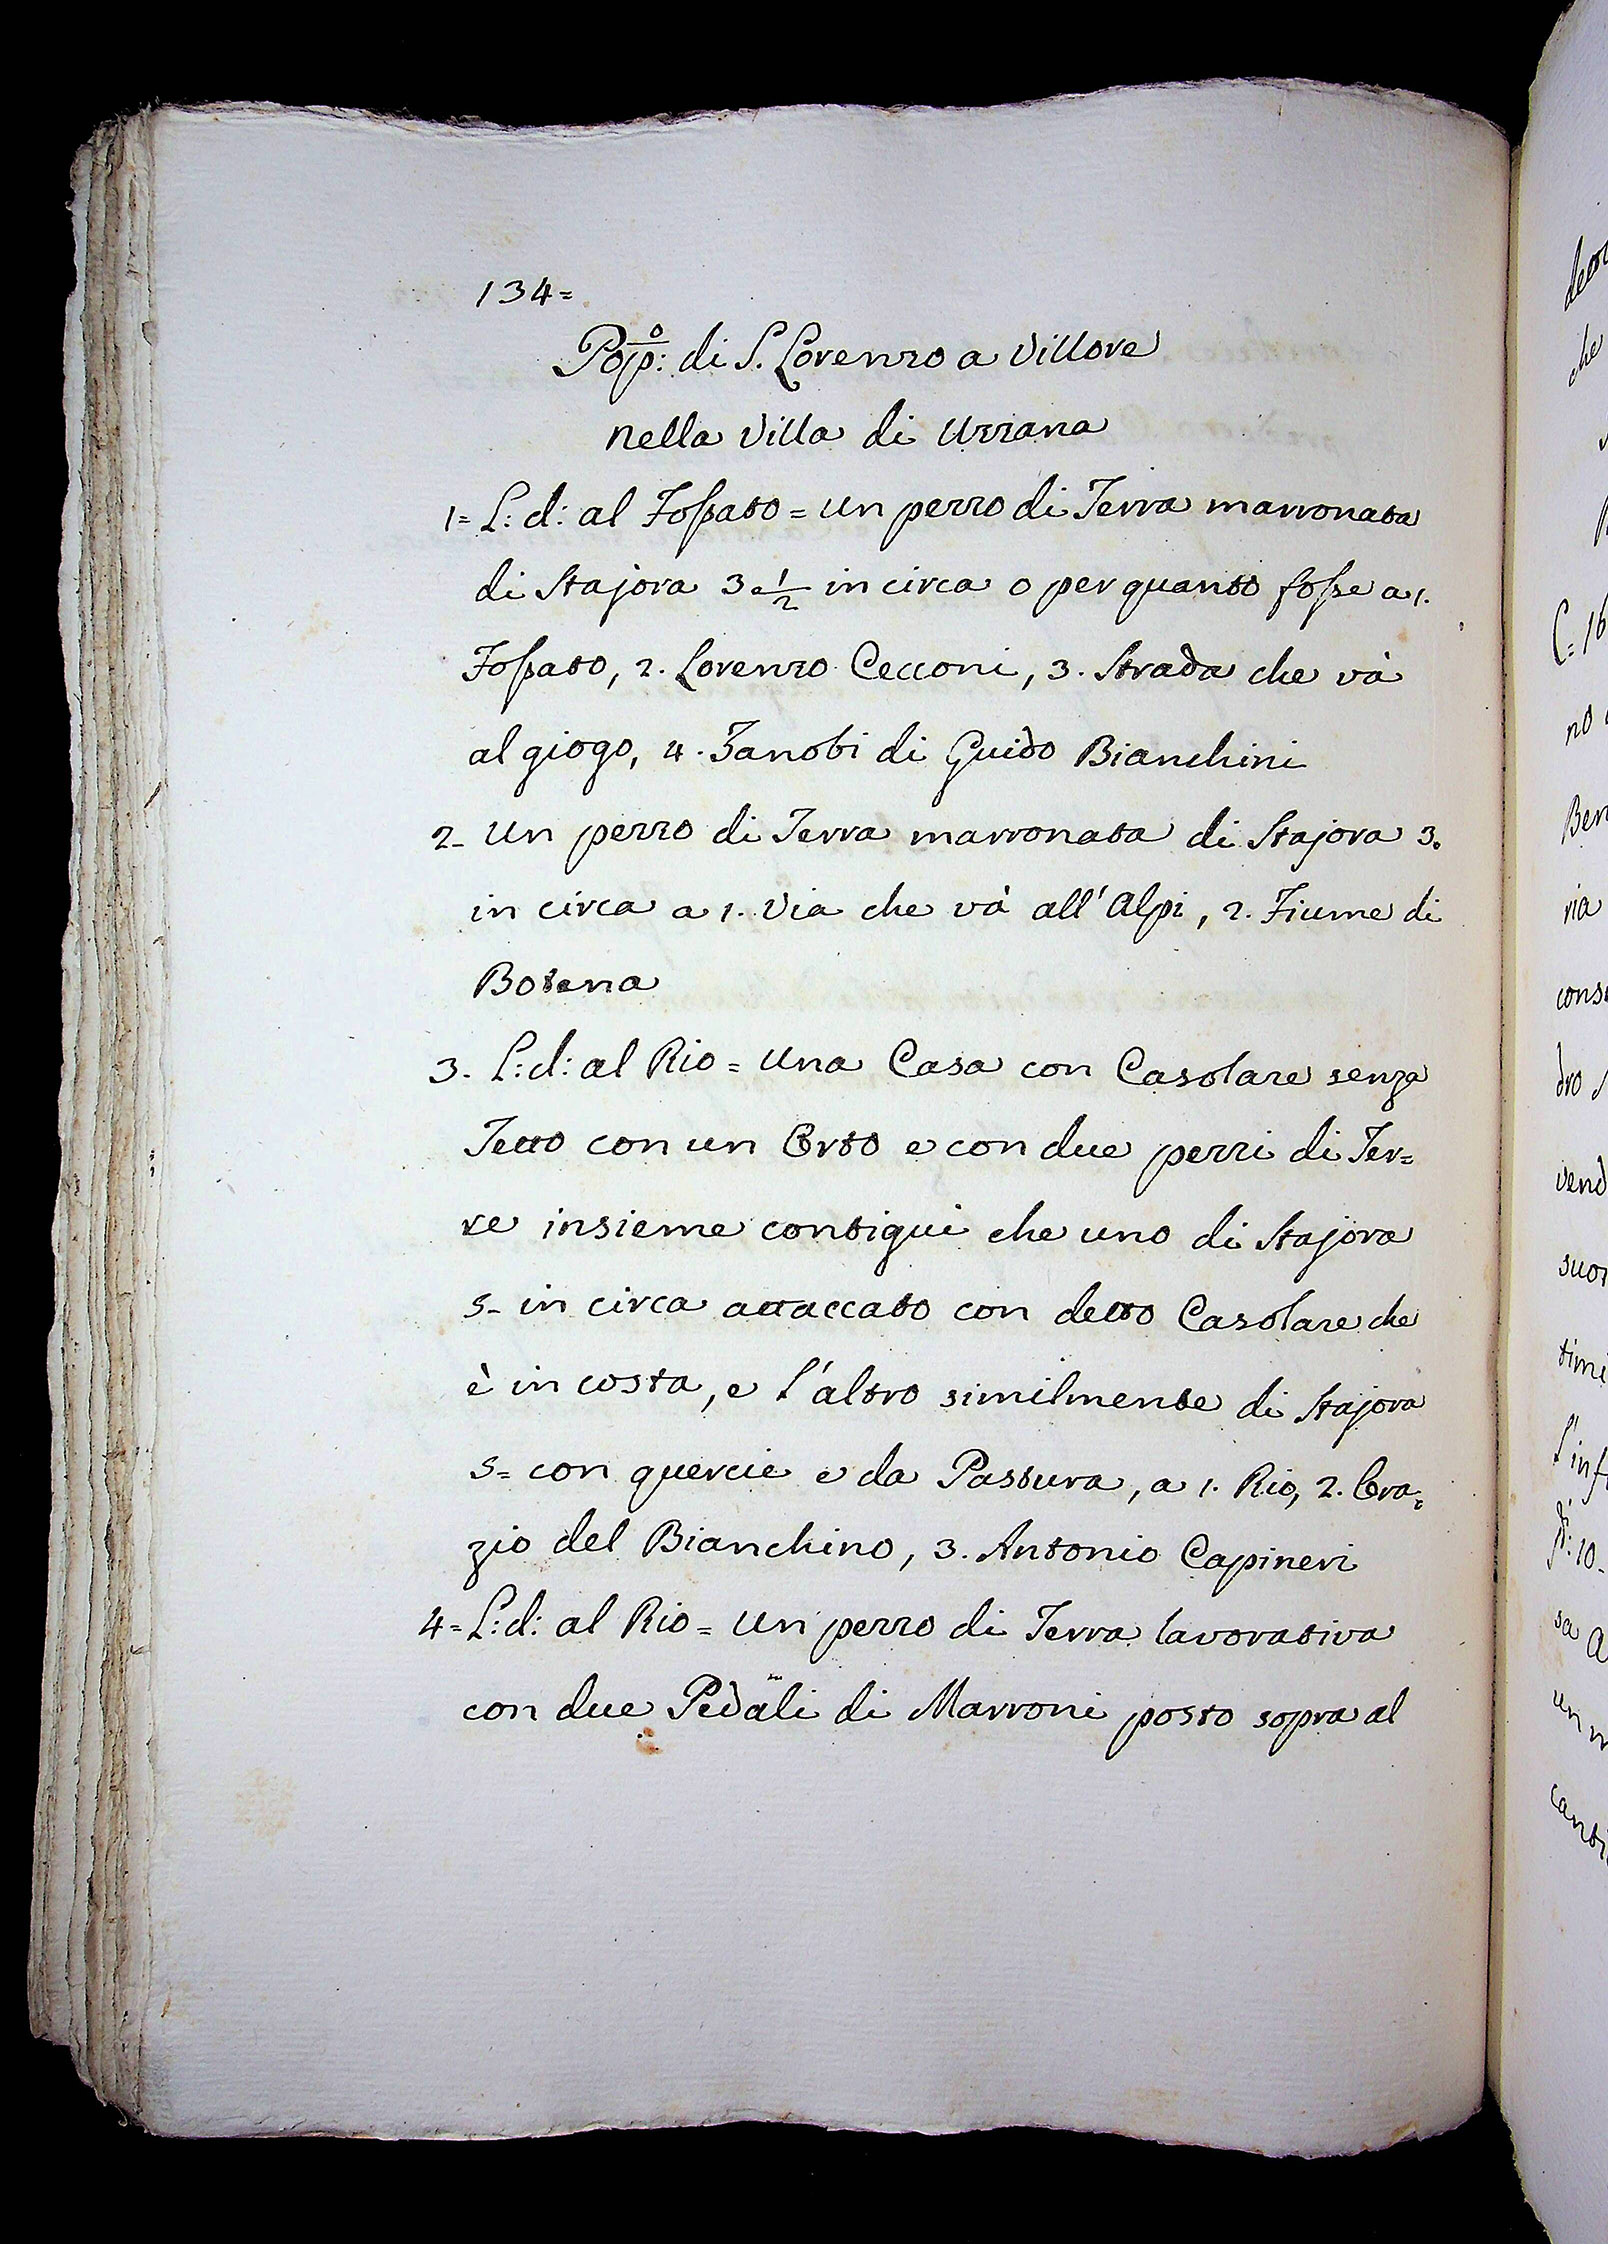 134=
Pop:º di S. Lorenzo a Villore
nella Villa di Uzzana
1= L: d: al Fossato = un pezzo di Terra marronata
di Stajora 3 e 1/2 in circa o per quanto fosse a 1.
Fossato, 2. Lorenzo Cecconi, 3. Strada che và
al giogo, 4. Zanobi di Guido Bianchini
2- un pezzo di Terra marronata di Stajora 3.
in circa a 1. Via che và all'Alpi, 2. Fiume di
Botena
3- L: d: al Rio = una Casa con Casolare senza
Tetto con un Orto e con due pezzi di Ter=
re insieme contigui che uno di Stajora
5- in circa attaccato con detto Casolare che
è in costa, e l'altro similmente di Stajora
5= con quercie e da Pastura, a 1. Rio, 2. Ora=
zio del Bianchino, 3. Antonio Capineri
4= L: d: al Rio = un pezzo di Terra lavorativa
con due Pedali di Marroni posto sopra al
che
C= 16
no
Ben
ria
dro
vend
suor
timi
l'inf
sa
un